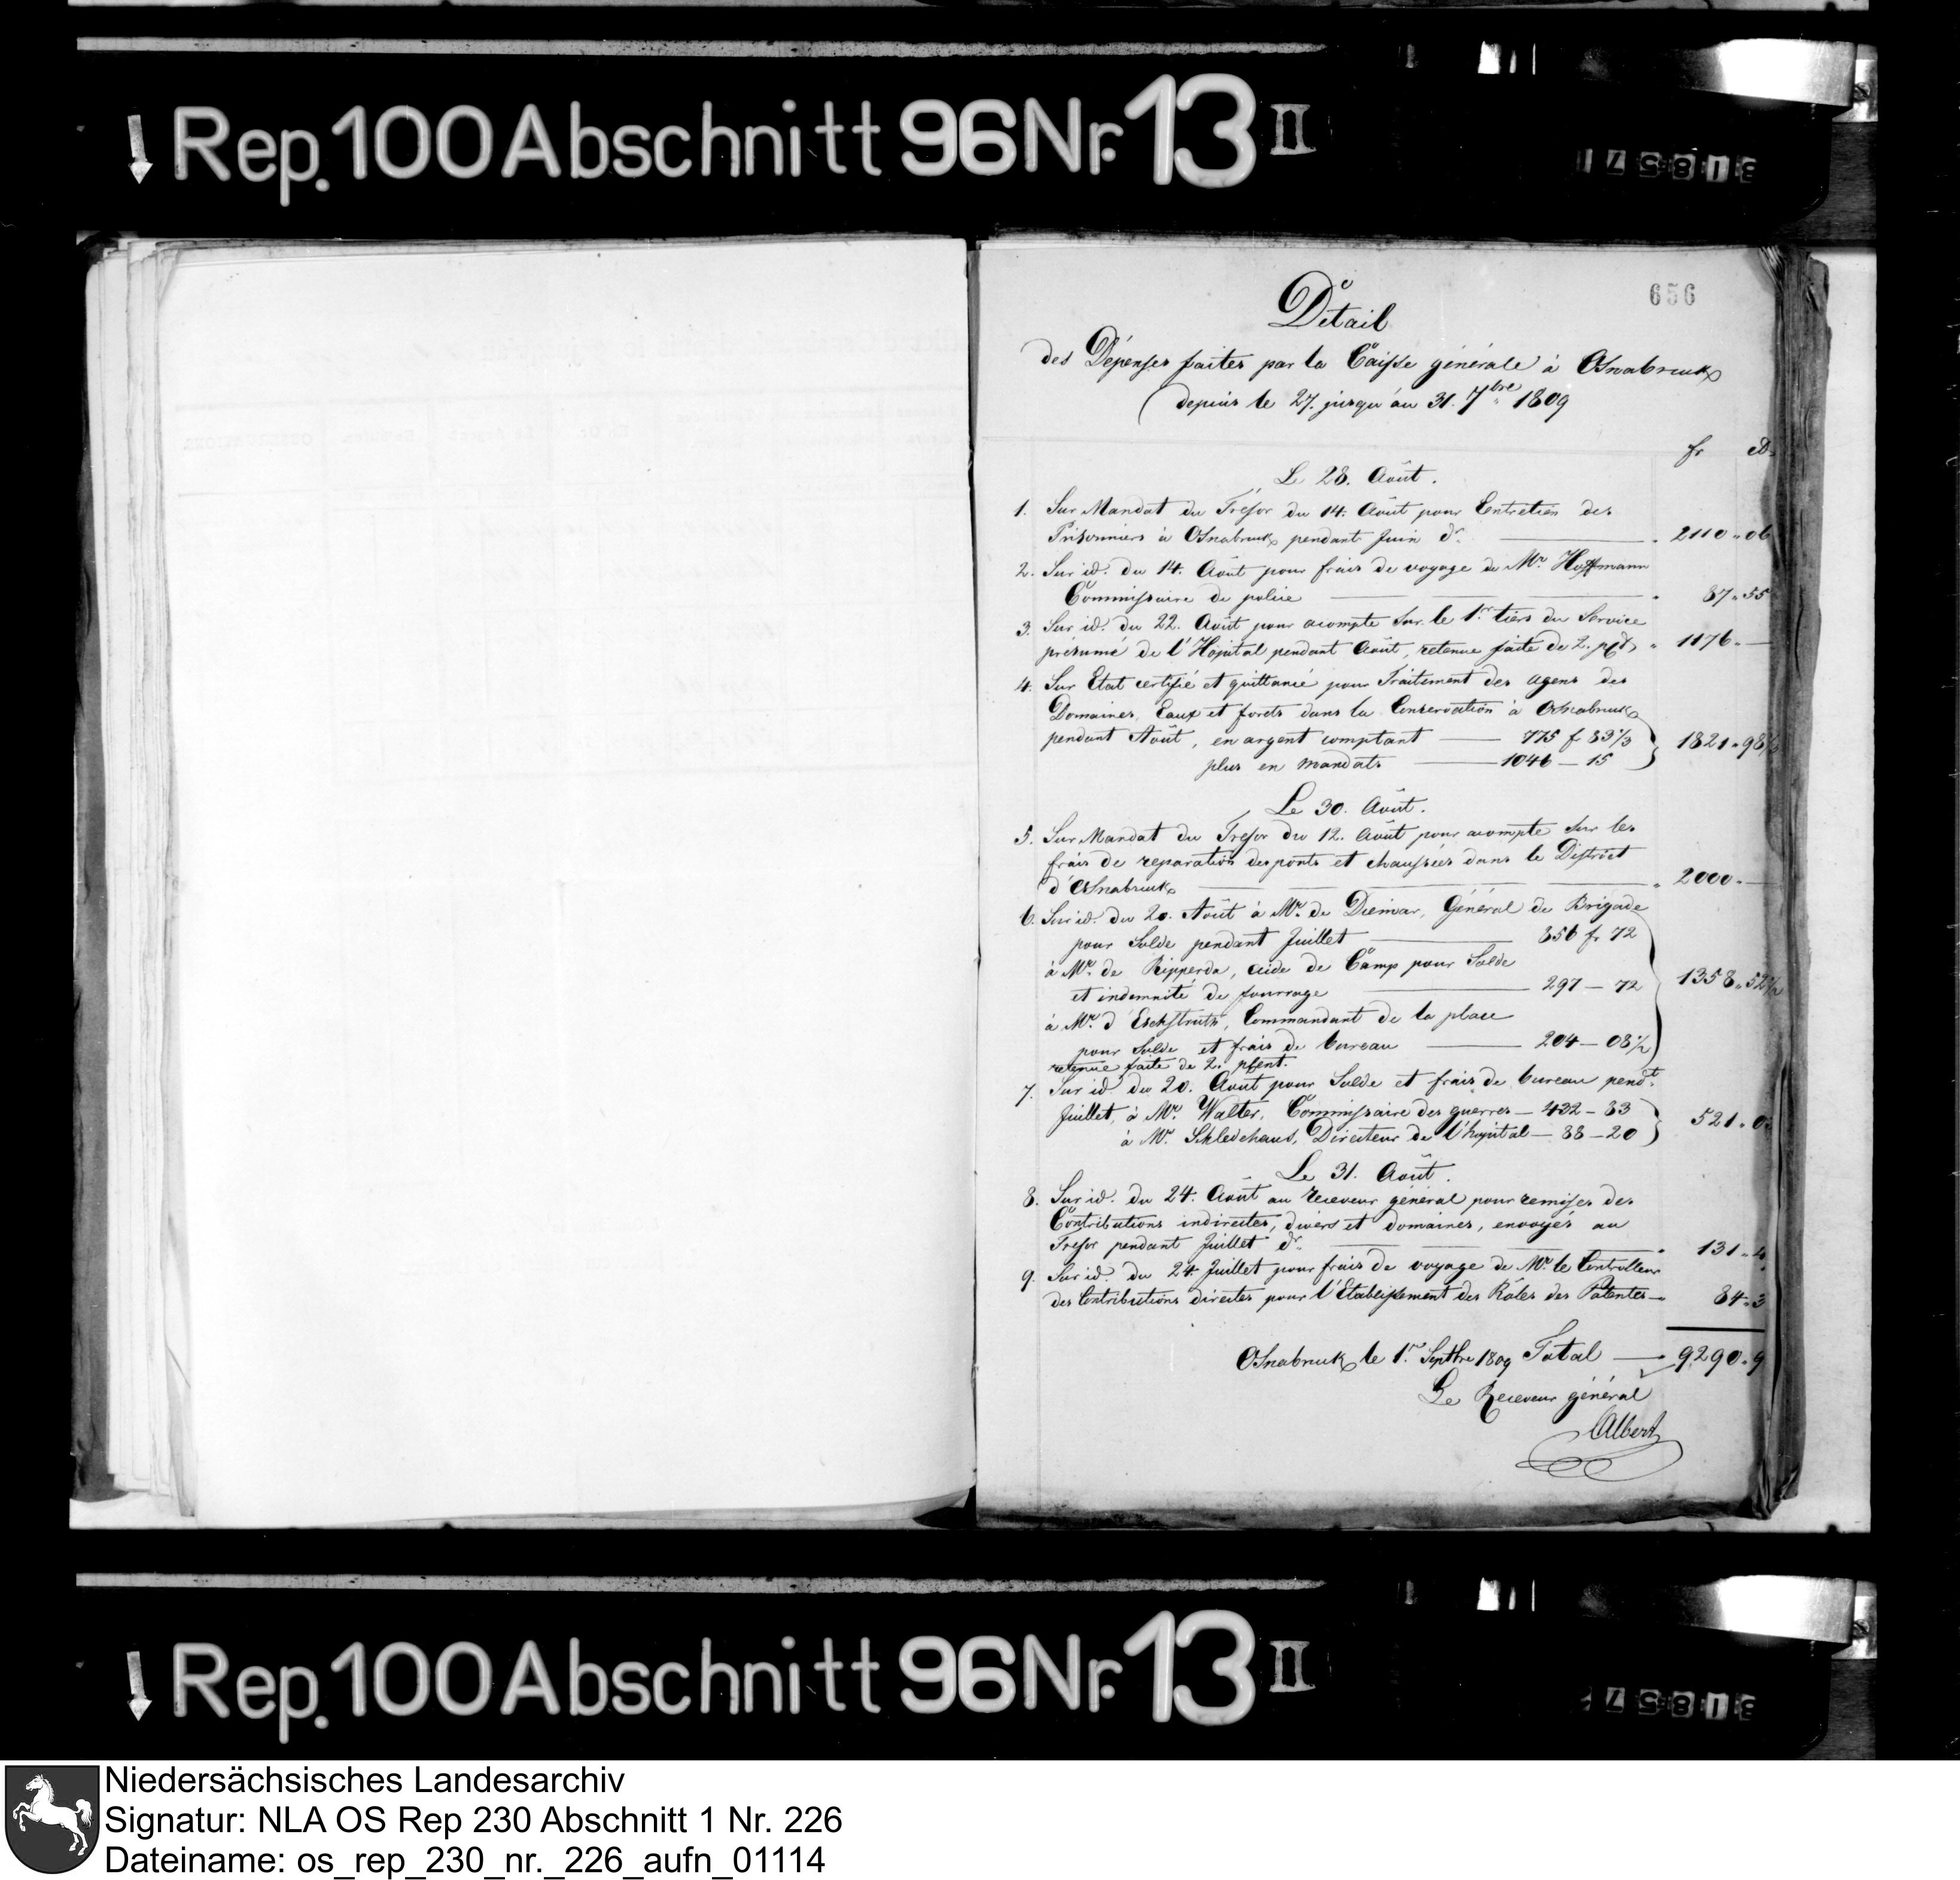 Rep. 100 Abschnitt 96 Nr. 13 II
656
Détail
des Dépenses faites par la Caisse générale à Osnabruck
depuis le 27. jusqu'au 31. 7bre 1809
fr
Le 28. Août.
1. Sur Mandat du Trésor du 14. Août pour Entretien des
Prisonniers à Osnabruck pendant Juin dr. 2110 " 06
2. Sur id. du 14. Août pour frais de voyage de Mr. Hoffmann
Commissaire de police 87 " 55
3. Sur id. du 22. Août pour acompte Sur le 1r tiers du Service
présumé de l'Hôpital pendant Août, retenue faite de 2. pCt " 1176 " —
4. Sur Etat certifié et quittancé pour Traitement des agens des
Domaines, Eaux et forets dans la Conservation à Osnabruck
pendant Août, en argent comptant — 775 f 83 1/3
plus en mandats — 1046 — 15 } 1821 " 98 1/3
Le 30. Août.
5. Sur Mandat du Tresor du 12. Août pour acompte Sur les
frais de reparation des ponts et chaussées dans le District
d'Osnabruck 2000 " —
6. Sur id. du 20. Août à Mr. de Diemar, Général de Brigade
pour Solde pendant Juillet — 856 fr 72
à Mr. de Ripperda, aide de Camp pour Solde
et indemnité de fourrage — 297 — 72 } 1358 " 52 1/2
à Mr. d'Eschstruth, Commandant de la place
pour Solde et frais de bureau — 204 — 08 1/2
retenue faite de 2. pCent.
7. Sur id. du 20. Août pour Solde et frais de bureau pendt.
Juillet, à Mr. Walter, Commissaire des guerres — 432 — 83
à Mr. Schledehaus, Directeur de l'hopital — 88 — 20 } 521 " 0
Le 31. Août.
8. Sur id. du 24. Août au receveur général pour remises des
Contributions indirectes, divers et domaines, envoyés au
Tresor pendant Juillet dr. 131 " 4
9. Sur id. du 24 Juillet pour frais de voyage de Mr. le Controlleur
des Contributions directes pour l'Etablissement des Rôles des Patentes — 84 " 3
Osnabruck le 1r. Septbre 1809 Total — 9,290 " 9
Le Receveur général
Albert
Rep. 100 Abschnitt 96 Nr. 13 II
Niedersächsisches Landesarchiv
Signatur: NLA OS Rep 230 Abschnitt 1 Nr. 226
Dateiname: os_rep_230_nr._226_aufn_01114